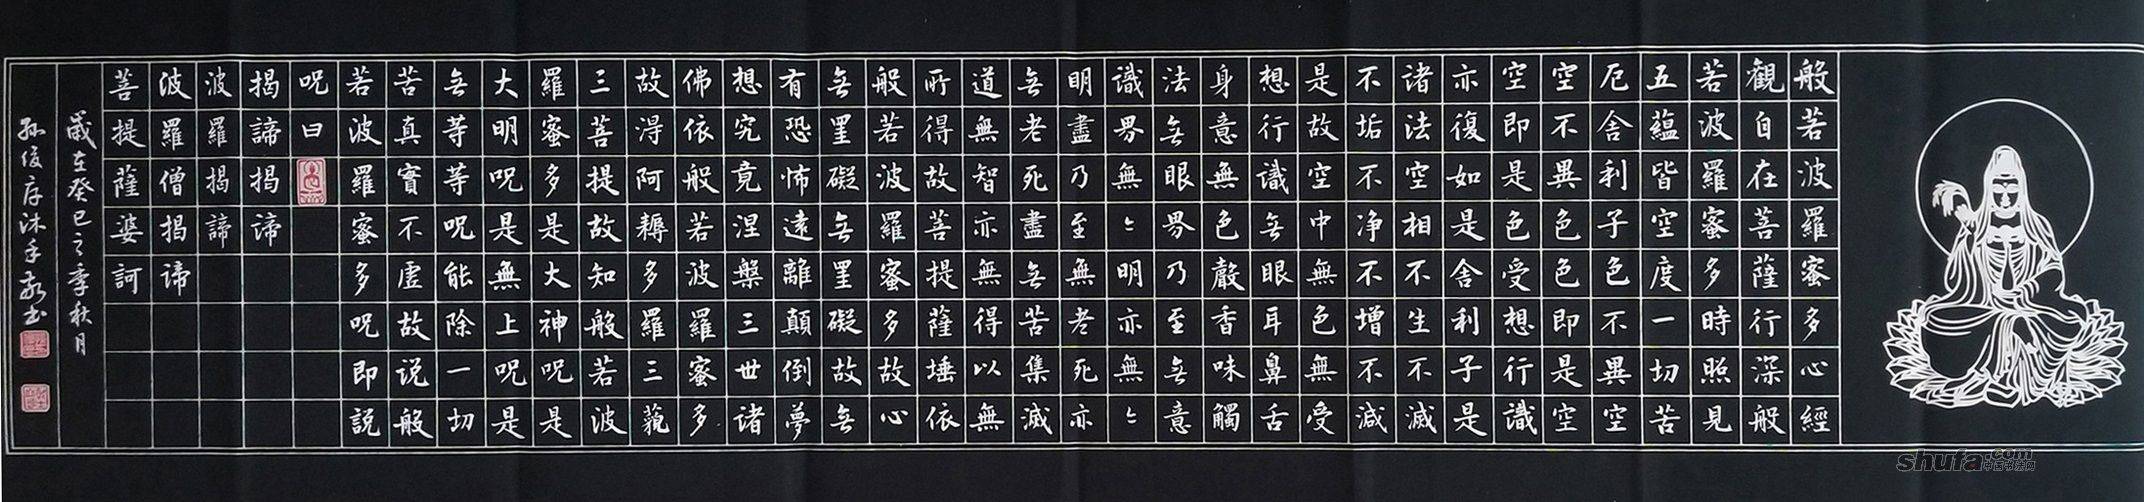 般若波羅蜜多心經
觀自在菩薩行深般
若波羅蜜多時照見
五蘊皆空度一切苦
厄舍利子色不異空
空不異色色即是空
空即是色受想行識
亦復如是舍利子是
諸法空相不生不滅
不垢不净不增不減
是故空中無色無受
想行識无眼耳鼻舌
身意無色聲香味觸
法无眼界乃至无意
識界無〻明亦無〻
明盡乃至無老死亦
无老死盡无苦集滅
道無智亦無得以無
所得故菩提薩埵依
般若波羅蜜多故心
无罣礙无罣礙故无
有恐怖遠離顛倒夢
想究竟涅槃三世諸
佛依般若波羅蜜多
故得阿耨多羅三藐
三菩提故知般若波
羅蜜多是大神呪是
大明呪是無上呪是
无等等呪能除一切
苦真實不虛故说般
若波羅蜜多呪即説
呪曰
揭諦揭諦
波羅揭諦
波羅僧揭諦
菩提薩婆訶
歲在癸巳之季秋月
孫俊序沐手敬书
shufa.com
中国书法网